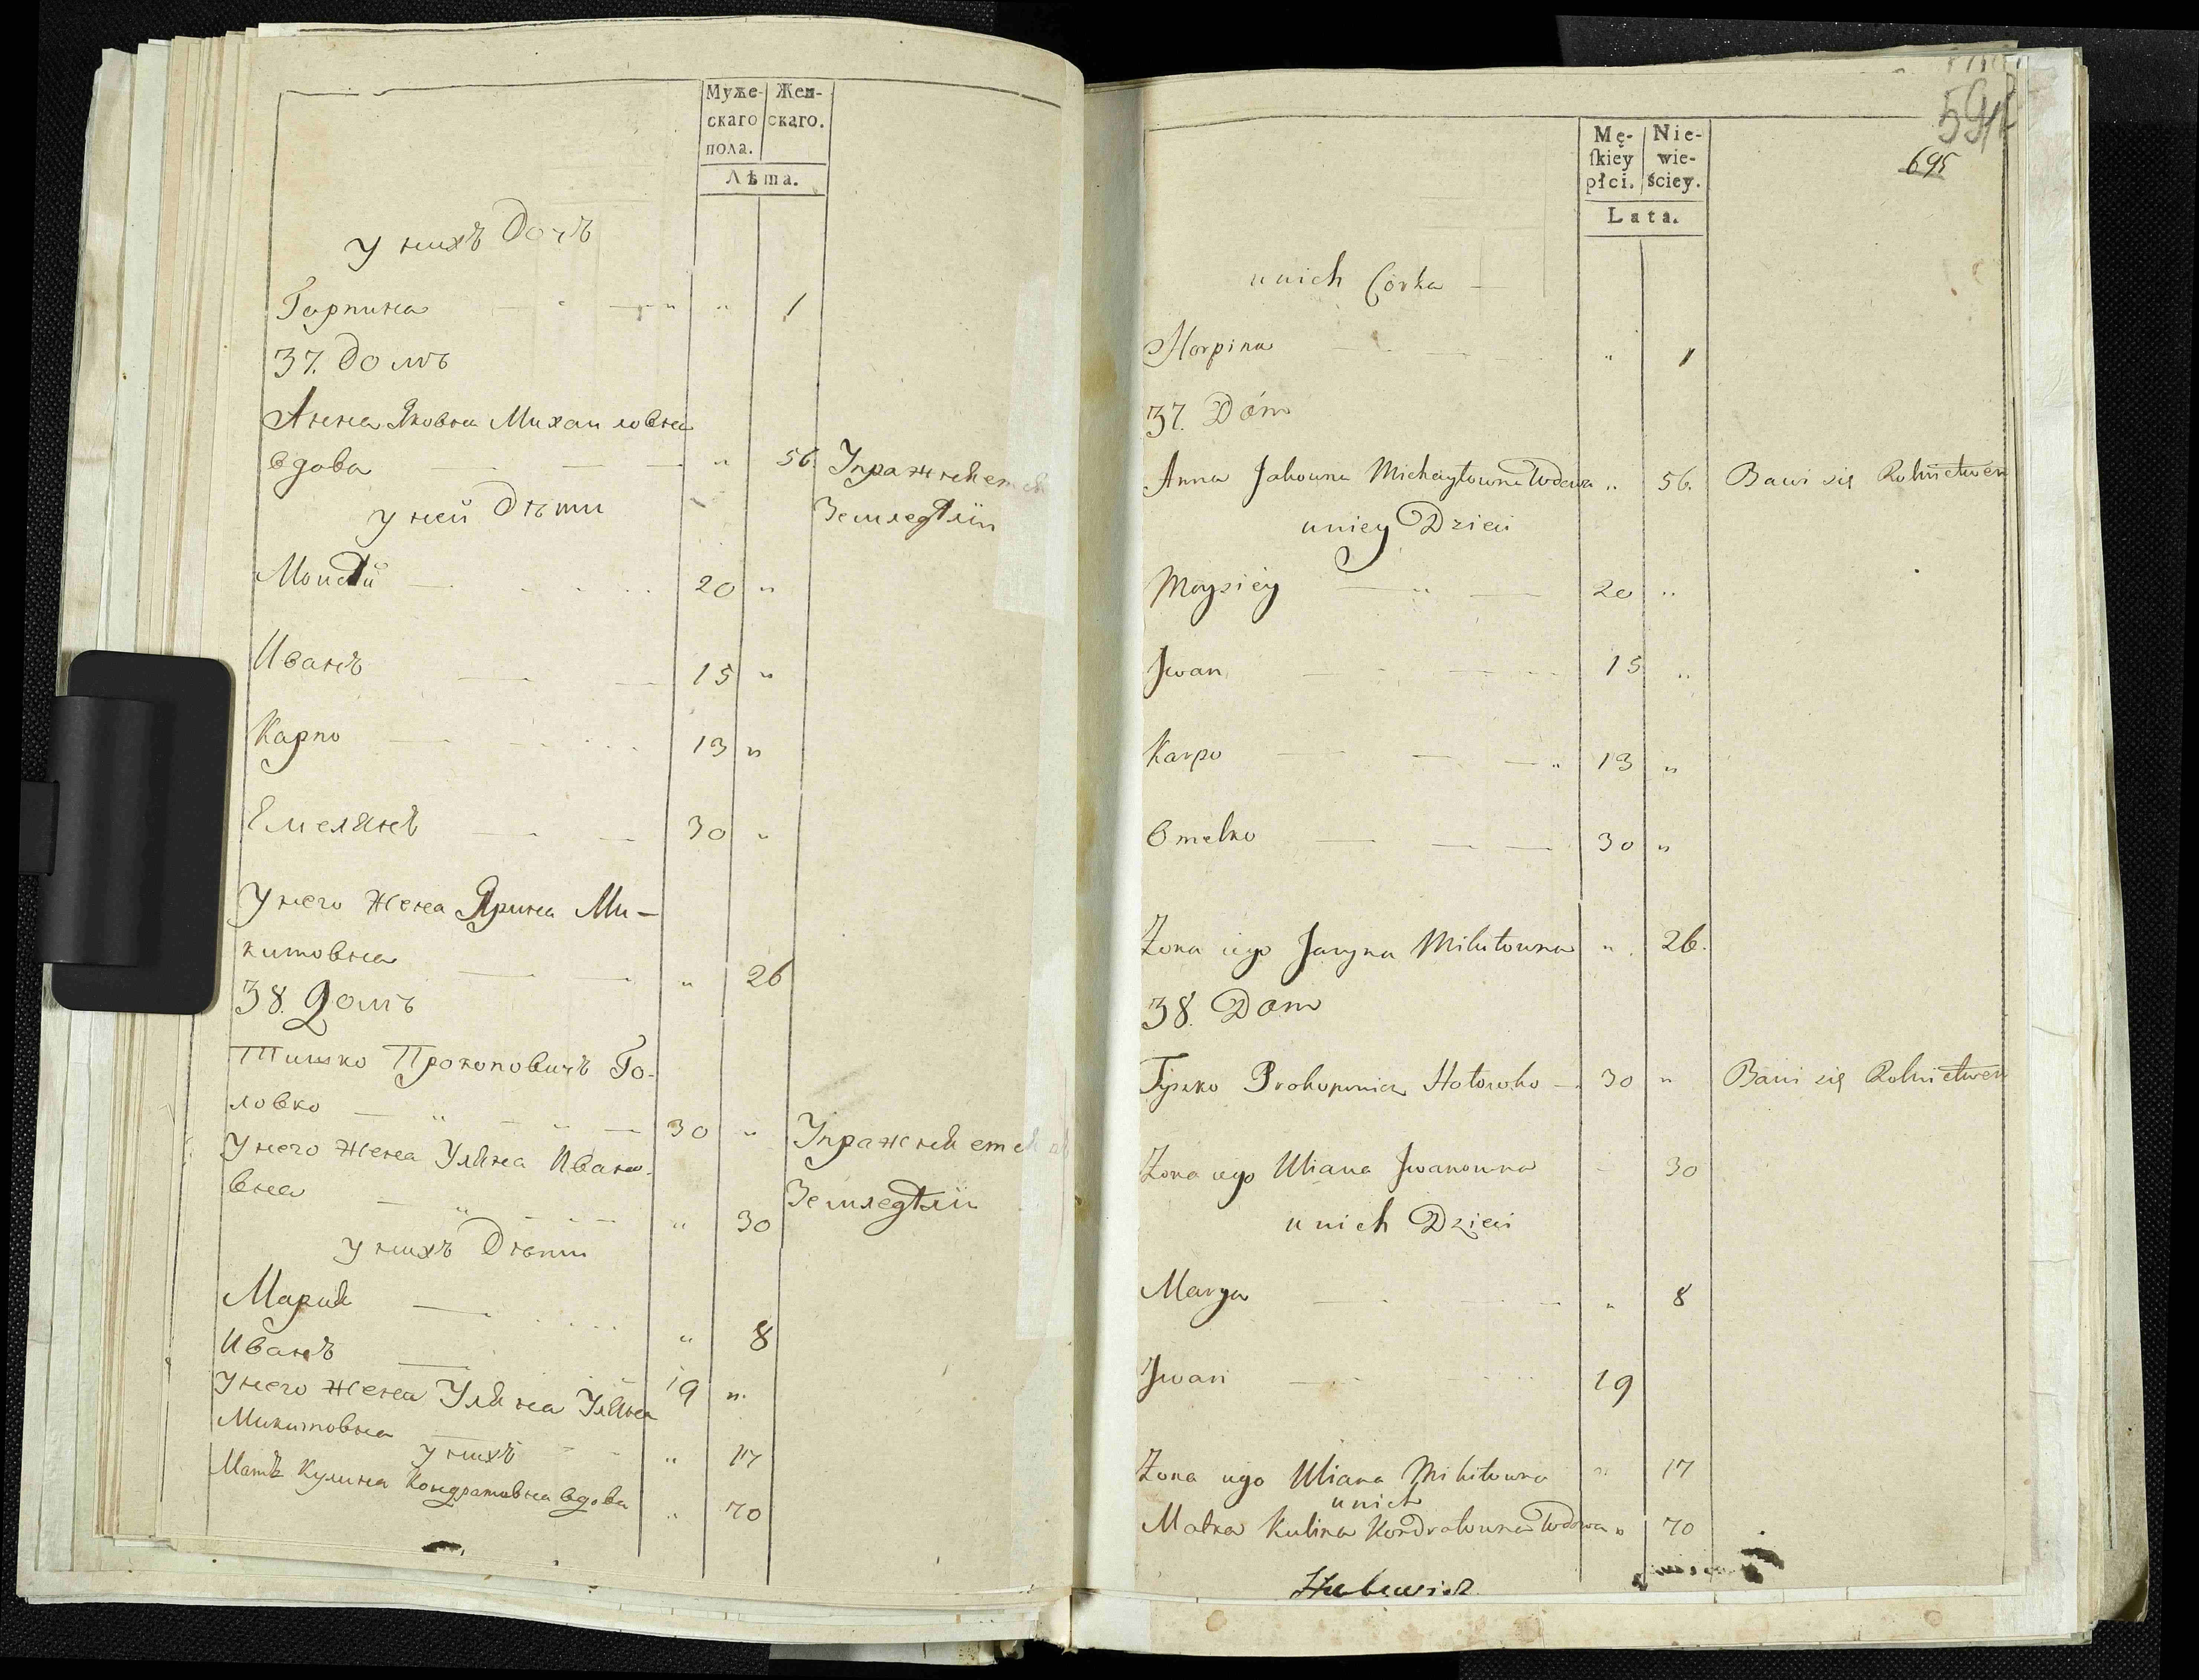 Муже- Жен-
скаго скаго.
пола.
Лѣта.
у нихъ дочъ
Горпина " 1
37. домъ
Анна Яковна Михайловна
вдова " 56. Упражняется
у ней дѣти Земледѣліи
Моисѣй 20 "
Иванъ 15 "
Карпо 13 "
Емелянъ 30 "
у него жена Ярина Ми-
китовна " 26
38. Домъ
Тишко Прокоповичъ Го-
ловко 30 " Упражняется
у него жена Уляна Ивано-
вна " 30 Земледѣліи
у нихъ дѣти
Мария " 8
Иванъ 19 "
у него жена Уляна Уляна
Микитовна " 17
у нихъ
Матъ Кулина Кондратовна вдова " 70
Mę- Nie-
skiey wie-
płci. ściey.
Lata.
695
u nich Córka
Horpina " 1
37. Dóm
Anna Jakowna Michayłowna Wdowa " 56. Bawi się Rolnictwem
u niey Dzieci
Moysiéy 20 "
Jwan 15 "
Karpo 13 "
Omelko 30 "
Żona iego Jaryna Mikitowna " 26.
38. Dom
Tyszko Prokopowicz Hołowko 30 " Bawi się Rolnictwem
Żona iego Uliana Jwanowna 30
u nich Dzieci
Marya " 8
Jwan 19
Żona iego Uliana Mikitowna " 17
u nich
Matka Kulina Kondratowna Wdowa " 70